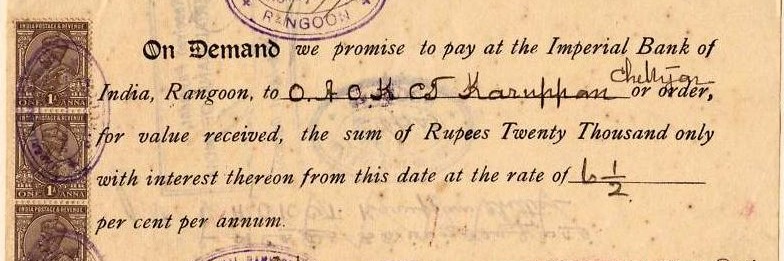 RANGOON
INDIA POSTAGE & REVENUE
1A
ONE ANNA
INDIA POSTAGE & REVENUE
1A
ONE ANNA
INDIA POSTAGE & REVENUE
On Demand we promise to pay at the Imperial Bank of
Chettyar
India, Rangoon, to O. A. O. K. CT Karuppan or order,
for value received, the sum of Rupees Twenty Thousand only
with interest thereon from this date at the rate of 6 1/2
per cent per annum.